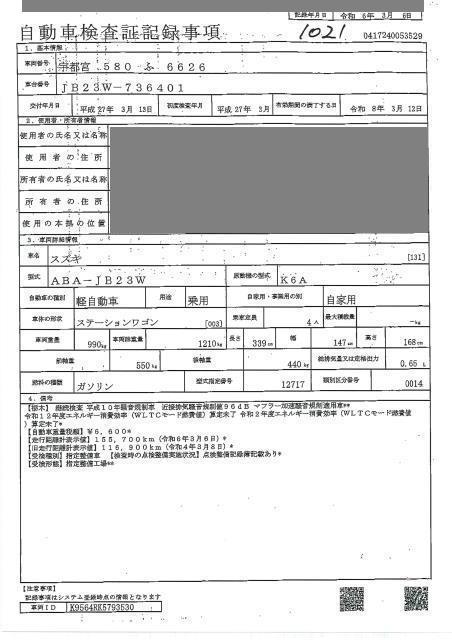 記録年月日 令和 6年 3月 6日
自動車検査証記録事項 1021 0417240053529
1．基本情報
車両番号 宇都宮 580 ふ 6626
車台番号 JB23W-736401
交付年月日 平成 27年 3月 13日 初度検査年月 平成 27年 3月 有効期間の満了する日 令和 8年 3月 12日
2．使用者・所有者情報
使用者の氏名又は名称
使用者の住所
所有者の氏名又は名称
所有者の住所
使用の本拠の位置
3．車両詳細情報
車名 スズキ [131]
型式 ABA-JB23W 原動機の型式 K6A
自動車の種別 軽自動車 用途 乗用 自家用・事業用の別 自家用
車体の形状 ステーションワゴン [003] 乗車定員 4人 最大積載量 -kg
車両重量 990kg 車両総重量 1210kg 長さ 339cm 幅 147cm 高さ 168cm
前軸重 550kg 後軸重 440kg 総排気量又は定格出力 0.65 L
燃料の種類 ガソリン 型式指定番号 12717 類別区分番号 0014
4．備考
【栃木】 継続検査 平成10年騒音規制車 近接排気騒音規制値96dB マフラー加速騒音規制適用車**
令和12年度エネルギー消費効率(WLTCモード燃費値)算定未了 令和2年度エネルギー消費効率(WLTCモード燃費値
)算定未了*
【自動車重量税額】¥6,600*
【走行距離計表示値】155,700km(令和6年3月6日)*
【旧走行距離計表示値】116,900km(令和4年3月8日)*
【受検種別】指定整備車 【検査時の点検整備実施状況】点検整備記録簿記載あり*
【受検形態】指定整備工場**
【注意事項】
記録事項はシステム登録時点の情報となります
車両ID K9564RK5793530